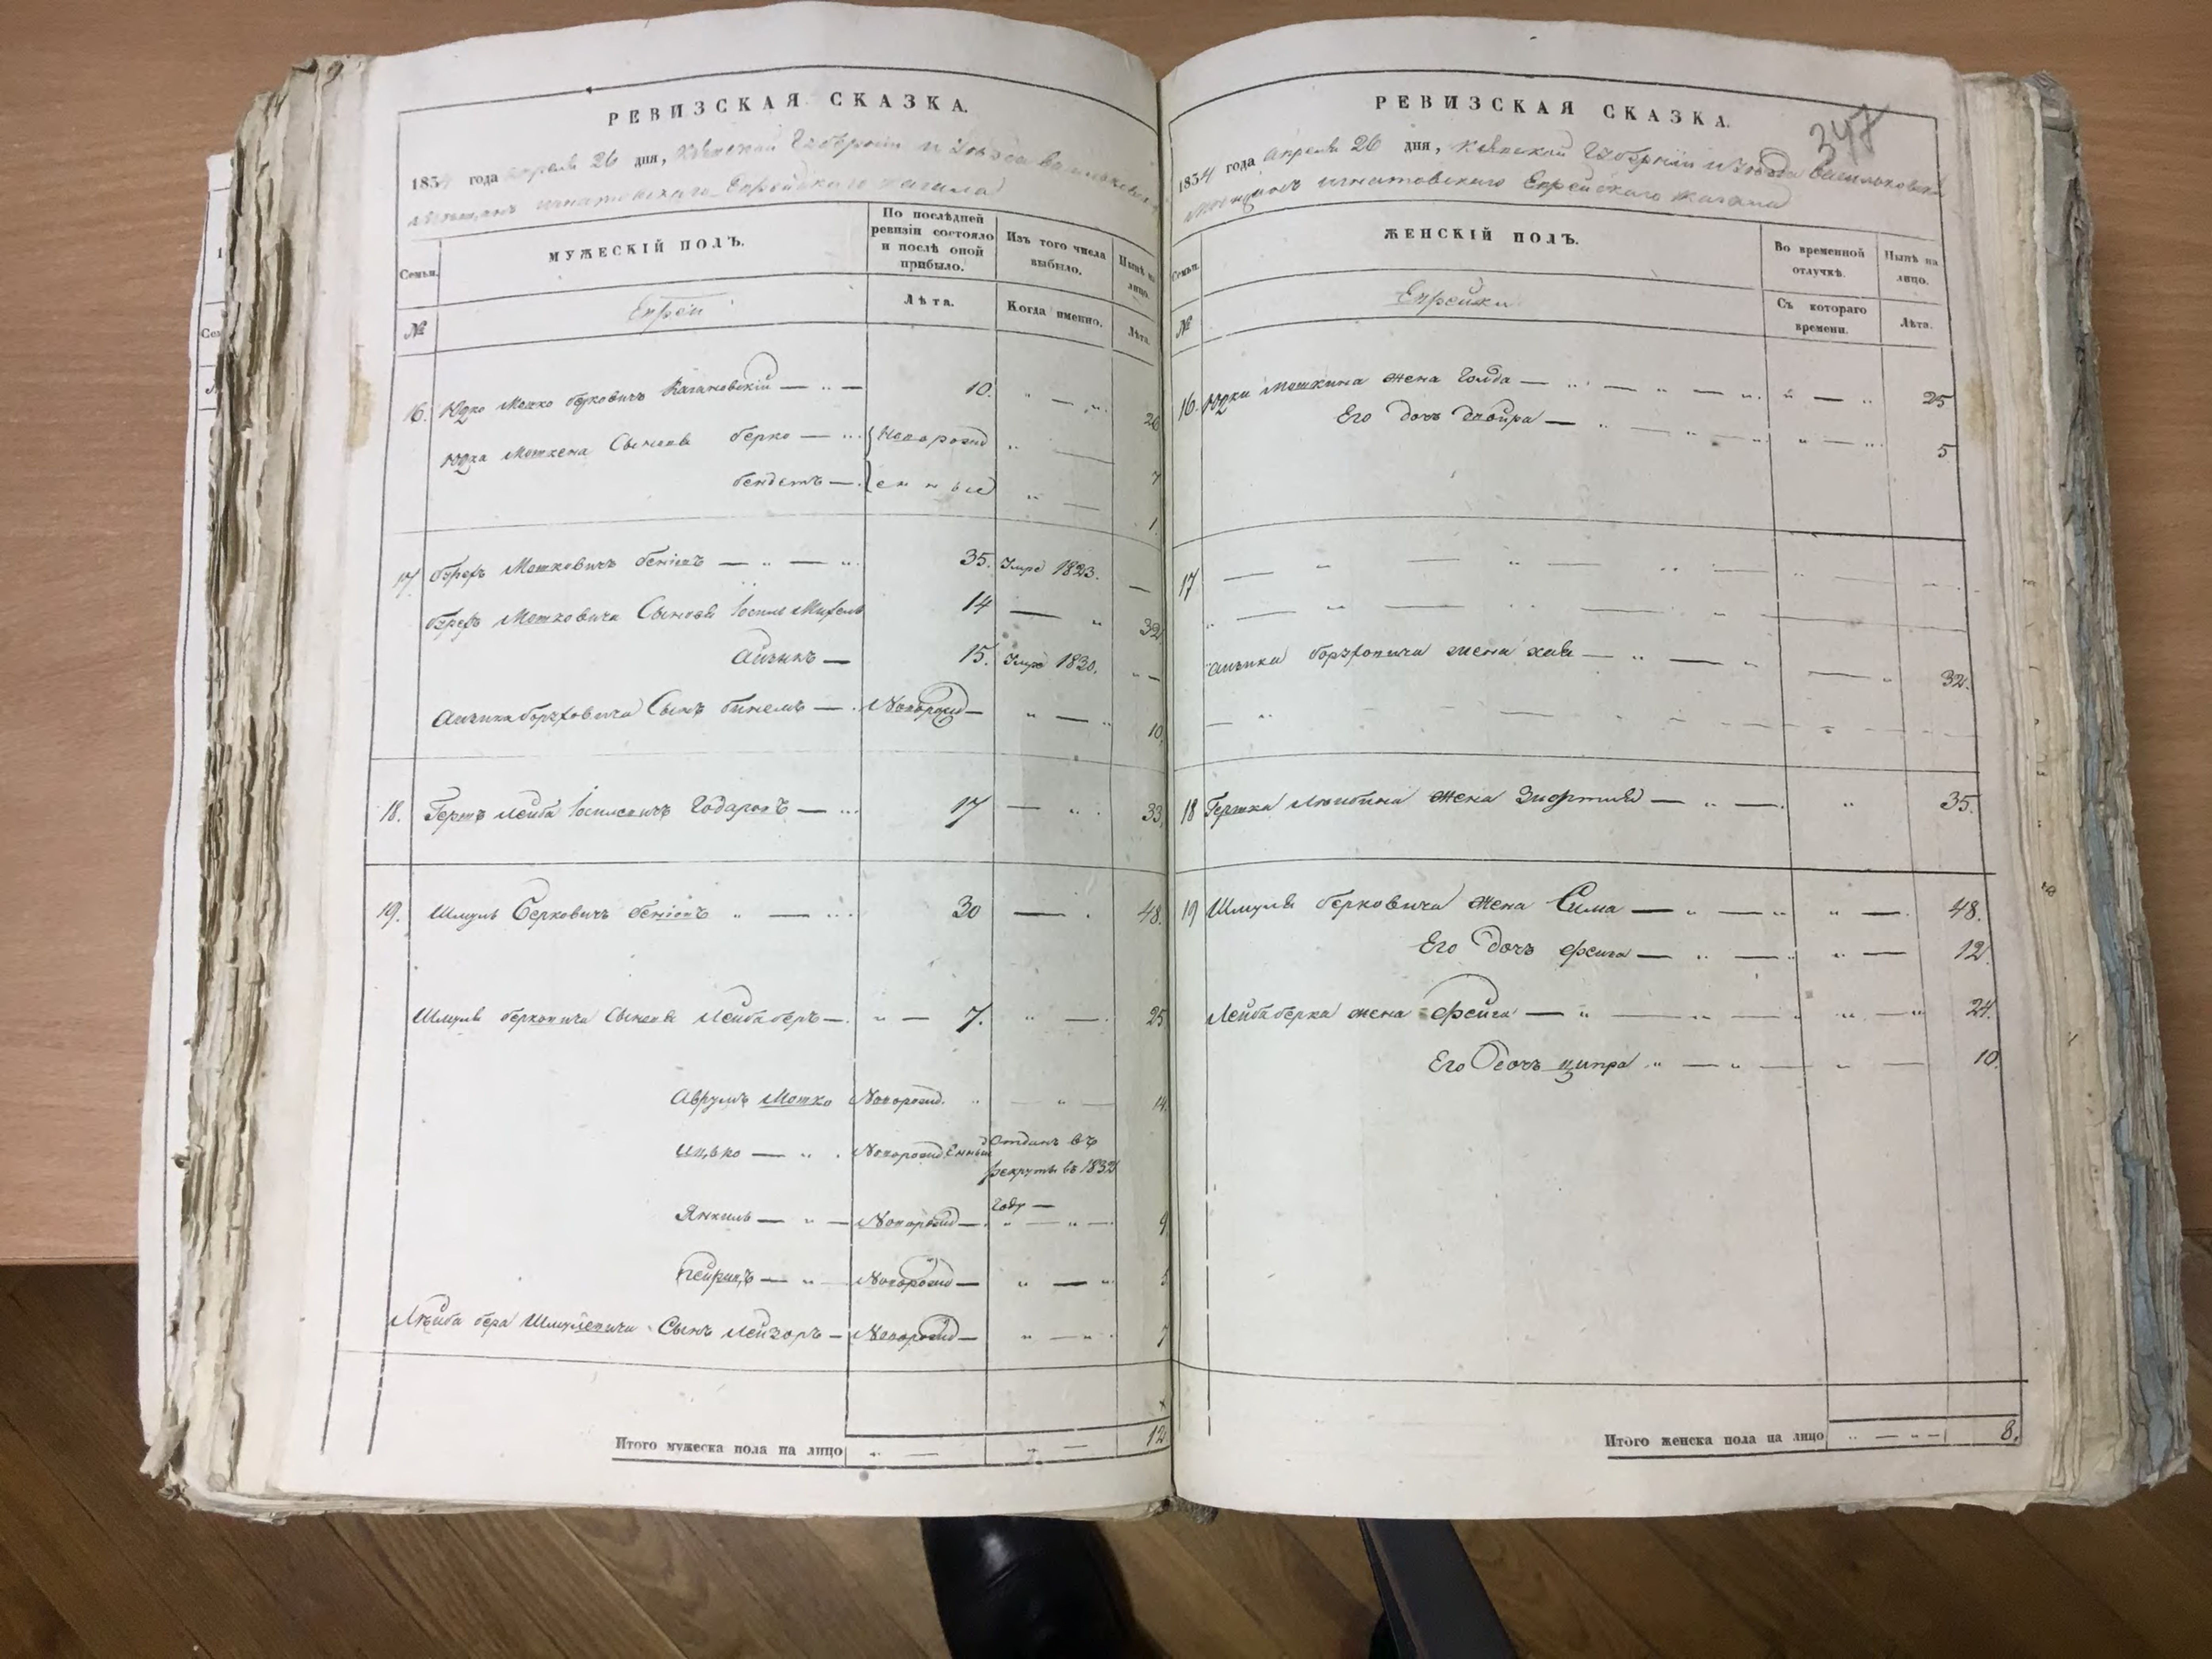 РЕВИЗСКАЯ СКАЗКА.
1834 года апреля 26 дня, Кіевской Губерніи и Уезда Васильковскаго
мещанъ игнатовскаго Еврейскаго кагала
Семьи.
МУЖЕСКІЙ ПОЛЪ.
По послѣдней ревизіи состояло и послѣ оной прибыло.
Изъ того числа выбыло.
Нынѣ на лицо.
№
Евреи
Лѣта.
Когда именно.
Лѣта.
16. Юдко Мошко берковичъ Кагановскій — „ — 10. „ — „ 26
Юдка Мошкена Сыновя берко — Новорожд „ — 7
бендетъ — енные „ — 1
17 борухъ Мошковичъ — „ — „ 35. Умре 1823. —
борухъ Мошковича Сыновя Іосиль Михель 14 — „ 32
Айзыкъ — 15. Умре 1830. „ —
Айзика борухховича Сынъ — Новорожд — „ — „ 10.
18. Герш лейба Іосиевичъ — 17 — „ 33,
19. Шмуль Берковичъ „ — 30 — 48.
Шмуля берковича Сыновя Лейба беръ — „ — 7. „ — 25
Аврумъ Мошко Новорожд. „ — „ — 14.
Ицько — „ Новорожденный Отданъ въ
рекруты въ 1832
году —
Янкиль — „ — Новорожд — „ — „ — 9
— „ — Новорожд — „ — „ 5
Лейба бера Шмулевича Сынъ Лейзоръ — Новорожд — „ — „ 7
Итого мужеска пола на лицо „ — „ — 12
347
РЕВИЗСКАЯ СКАЗКА.
1834 года апреля 26 дня, Кіевской Губерніи и Уезда Васильковскаго
мещанъ игнатовскаго Еврейскаго кагала
Семьи.
ЖЕНСКІЙ ПОЛЪ.
Во временной отлучкѣ.
Нынѣ на лицо.
№
Еврейки
Съ котораго времени.
Лѣта.
16. Юдки Мошкина жена Голда — „ — „ — „ 25
Его дочь двойра — „ — „ — „ 5
17 — „ — „ — „
Айзика борухховича жена хая — „ — „ — „ 32.
18 Гершка Лейбина жена — „ — „ 35.
19 Шмуля берковича жена Сима — „ — „ „ — 48.
Его дочь фейга — „ — „ — 12.
Лейба берка жена фейга — „ — „ — „ 24.
Его дочь ципра „ — „ — „ — 10.
Итого женска пола на лицо „ — „ — 8.